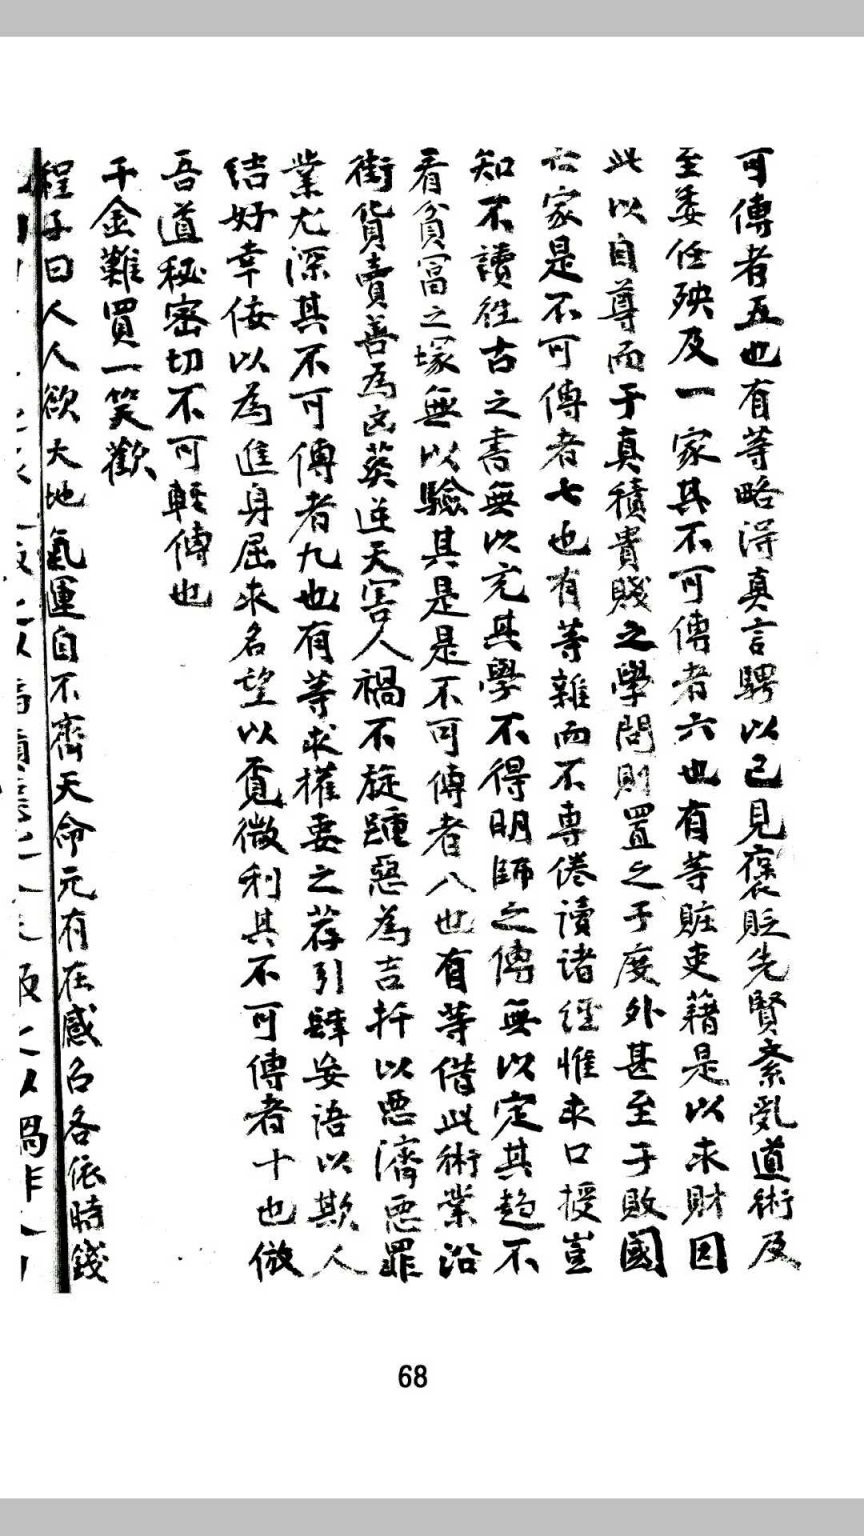 可傳者五也有等略得真言騁以己見褒貶先賢紊亂道術及
至委任殃及一家其不可傳者六也有等賍吏藉是以求財因
此以自尊而于真積貴賤之學問則置之于度外甚至于敗國
亡家是不可傳者七也有等雜而不專倦讀諸經惟求口授豈
知不讀徃古之書無以充其學不得明師之傳無以定其趋不
看貧冨之塚無以驗其是是不可傳者八也有等借此術業沿
街貨賣善為凶葬逆天害人禍不旋踵惡為吉扦以惡濟惡罪
業尤深其不可傳者九也有等求權要之荐引肆妄語以欺人
結好幸佞以為進身屈求名望以覔微利其不可傳者十也倣
吾道秘密切不可輕傳也
千金難買一笑歡
程子曰人人欲天地氣運自不齊天命元有在感召各依時錢
68